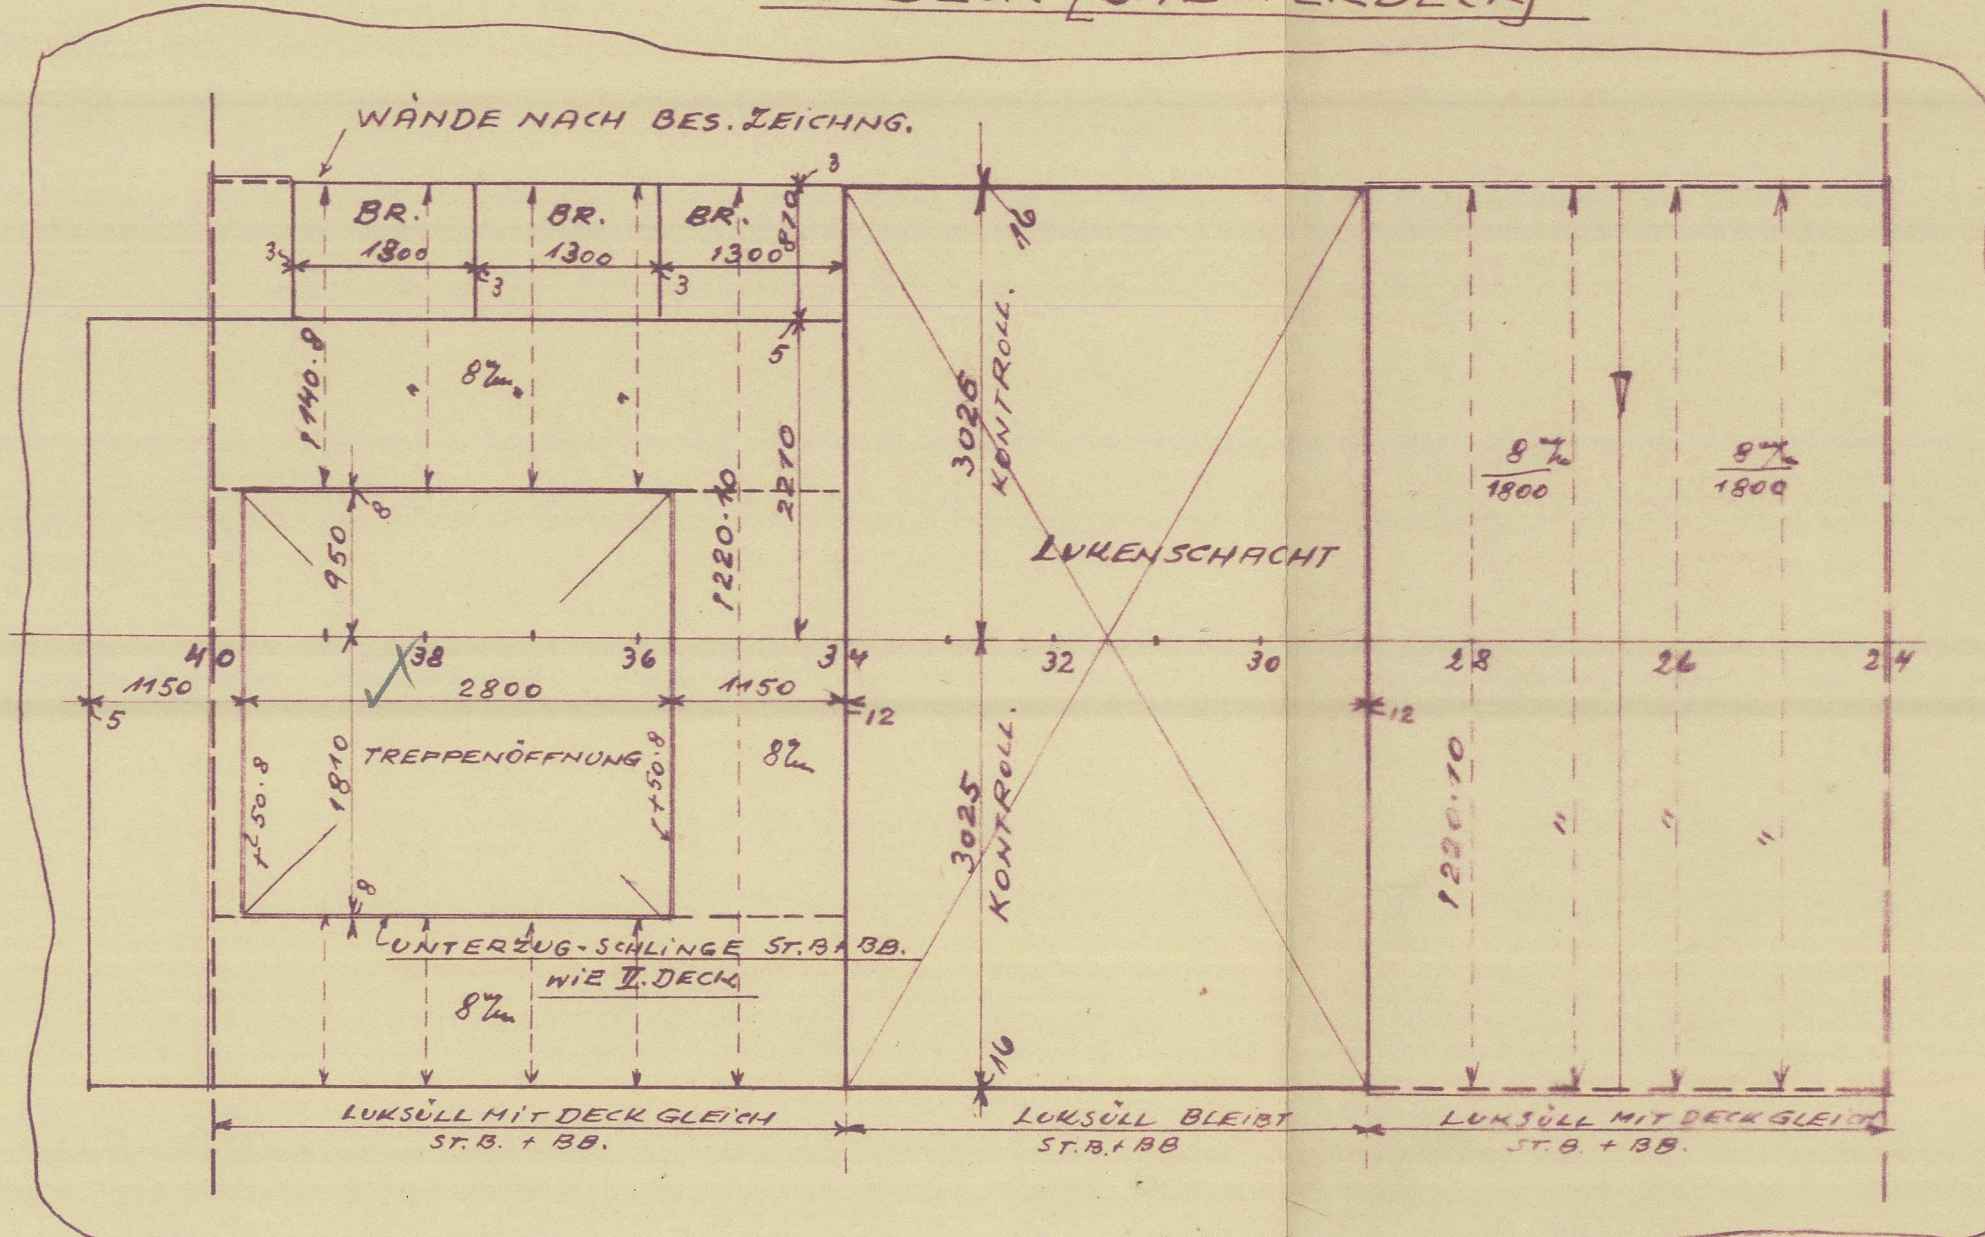 WÄNDE NACH BES. ZEICHNG.
3
BR. BR. BR.
1300 1300 1300
870
3 3 3
16
5
140.8
8 m/m
" " "
8
950
1220.10
2210
3025
KONTROLL.
8 m/m
1800
8 m/m
1800
LUKENSCHACHT
40 38 36 34 32 30 28 26 24
1150 2800 1150
5 12 12
TREPPENÖFFNUNG
50.8
1810
50.8
8 m/m
3025
KONTROLL.
1220.10
" " "
8
UNTERZUG-SCHLINGE ST.B+BB.
WIE II. DECK
8 m/m
16
LUKSÜLL MIT DECK GLEICH
ST.B. + BB.
LUKSÜLL BLEIBT
ST.B.+BB
LUKSÜLL MIT DECK GLEICH
ST.B. + BB.